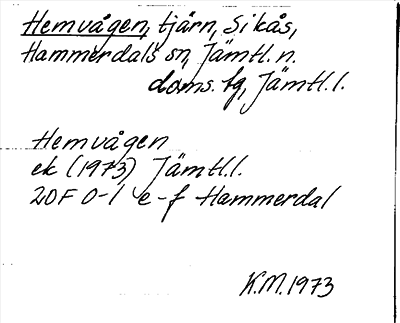 Hemvågen, tjärn, Sikås,
Hammerdals sn, Jämtl. n.
doms. fg, Jämtl. l.
Hemvågen
ek (1973) Jämtl.l.
20F 0-1 e-f Hammerdal
K.M. 1973